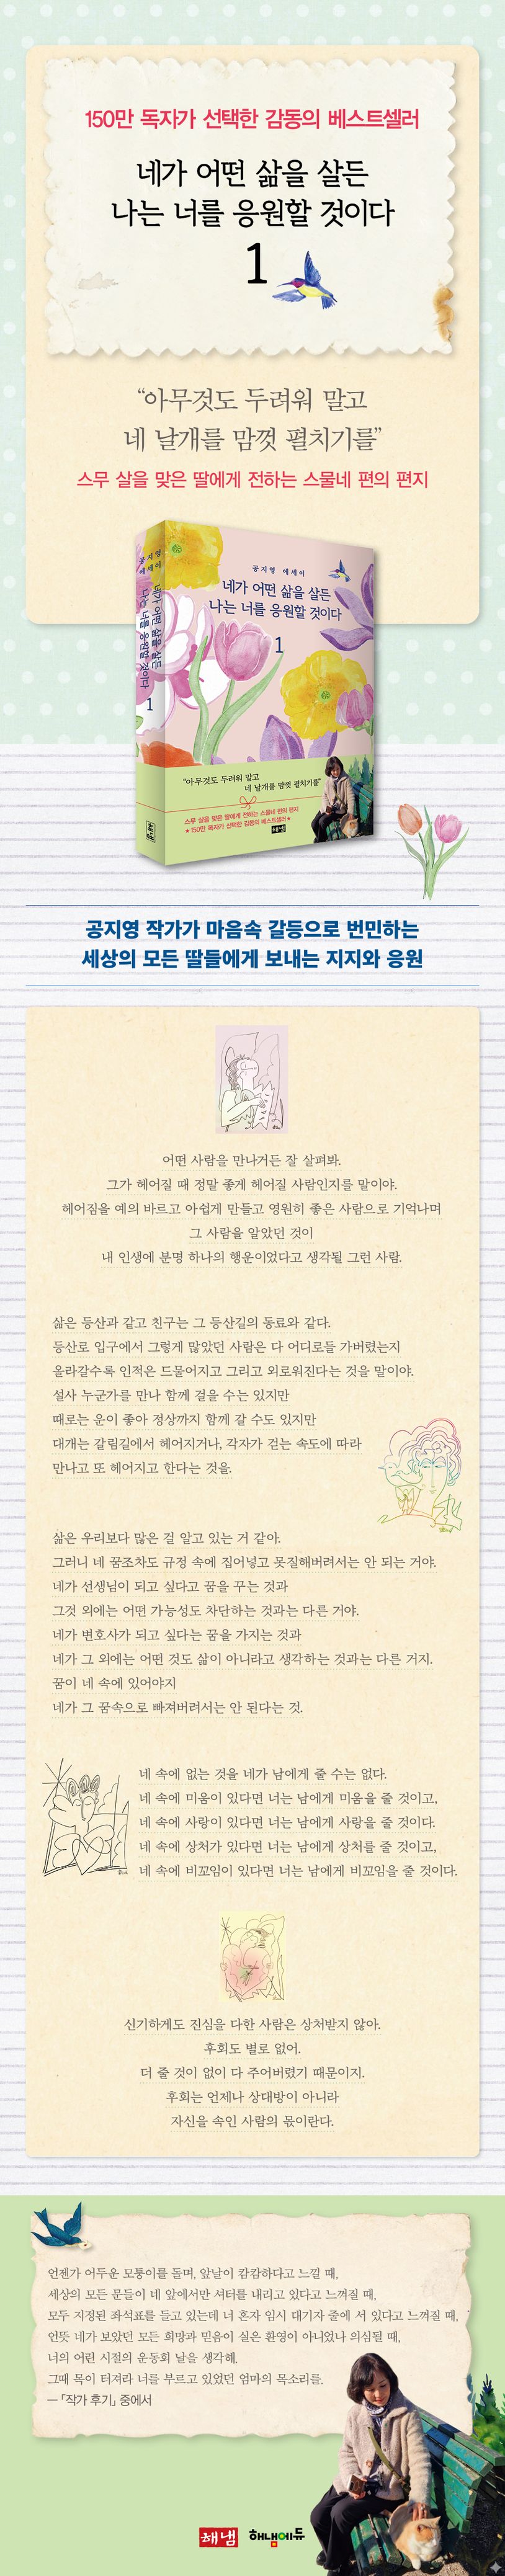 150만 독자가 선택한 감동의 베스트셀러
네가 어떤 삶을 살든
나는 너를 응원할 것이다
1
“아무것도 두려워 말고
네 날개를 맘껏 펼치기를”
스무 살을 맞은 딸에게 전하는 스물네 편의 편지
공지영 에세이
네가 어떤 삶을 살든
나는 너를 응원할 것이다
1
공지영 에세이
네가 어떤 삶을 살든
나는 너를 응원할 것이다
1
“아무것도 두려워 말고
네 날개를 맘껏 펼치기를”
스무 살을 맞은 딸에게 전하는 스물네 편의 편지
★150만 독자가 선택한 감동의 베스트셀러★
해냄
해냄
공지영 작가가 마음속 갈등으로 번민하는
세상의 모든 딸들에게 보내는 지지와 응원
어떤 사람을 만나거든 잘 살펴봐.
그가 헤어질 때 정말 좋게 헤어질 사람인지를 말이야.
헤어짐을 예의 바르고 아쉽게 만들고 영원히 좋은 사람으로 기억나며
그 사람을 알았던 것이
내 인생에 분명 하나의 행운이었다고 생각될 그런 사람.
삶은 등산과 같고 친구는 그 등산길의 동료와 같다.
등산로 입구에서 그렇게 많았던 사람은 다 어디로들 가버렸는지
올라갈수록 인적은 드물어지고 그리고 외로워진다는 것을 말이야.
설사 누군가를 만나 함께 걸을 수는 있지만
때로는 운이 좋아 정상까지 함께 갈 수도 있지만
대개는 갈림길에서 헤어지거나, 각자가 걷는 속도에 따라
만나고 또 헤어지고 한다는 것을.
삶은 우리보다 많은 걸 알고 있는 거 같아.
그러니 네 꿈조차도 규정 속에 집어넣고 못질해버려서는 안 되는 거야.
네가 선생님이 되고 싶다고 꿈을 꾸는 것과
그것 외에는 어떤 가능성도 차단하는 것과는 다른 거야.
네가 변호사가 되고 싶다는 꿈을 가지는 것과
네가 그 외에는 어떤 것도 삶이 아니라고 생각하는 것과는 다른 거지.
꿈이 네 속에 있어야지
네가 그 꿈속으로 빠져버려서는 안 된다는 것.
네 속에 없는 것을 네가 남에게 줄 수는 없다.
네 속에 미움이 있다면 너는 남에게 미움을 줄 것이고,
네 속에 사랑이 있다면 너는 남에게 사랑을 줄 것이다.
네 속에 상처가 있다면 너는 남에게 상처를 줄 것이고,
네 속에 비꼬임이 있다면 너는 남에게 비꼬임을 줄 것이다.
신기하게도 진심을 다한 사람은 상처받지 않아.
후회도 별로 없어.
더 줄 것이 없이 다 주어버렸기 때문이지.
후회는 언제나 상대방이 아니라
자신을 속인 사람의 몫이란다.
언젠가 어두운 모퉁이를 돌며, 앞날이 캄캄하다고 느낄 때,
세상의 모든 문들이 네 앞에서만 셔터를 내리고 있다고 느껴질 때,
모두 지정된 좌석표를 들고 있는데 너 혼자 임시 대기자 줄에 서 있다고 느껴질 때,
언뜻 네가 보았던 모든 희망과 믿음이 실은 환영이 아니었나 의심될 때,
너의 어린 시절의 운동회 날을 생각해.
그때 목이 터져라 너를 부르고 있었던 엄마의 목소리를.
— 「작가 후기」 중에서
해냄
해냄에듀